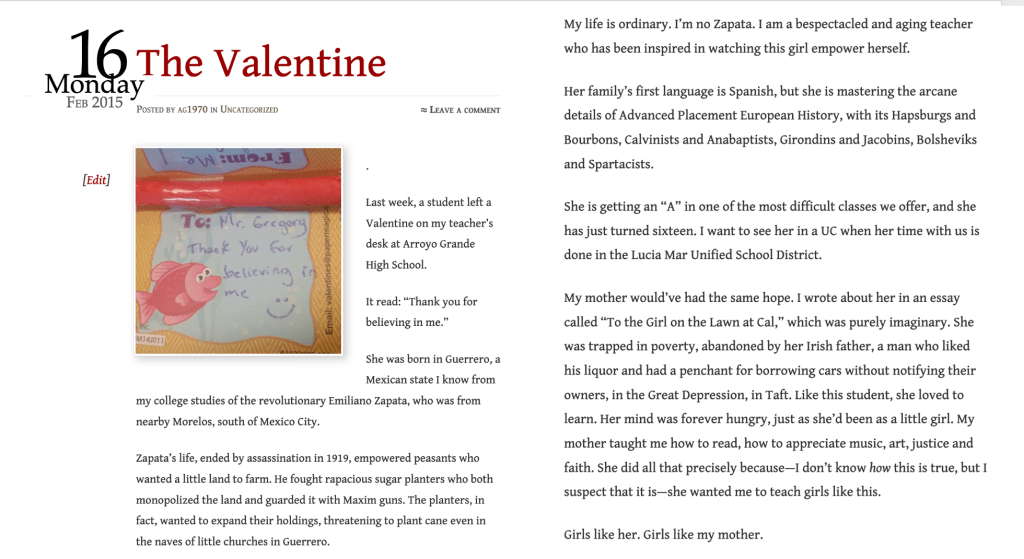 16
Monday
Feb 2015
The Valentine
Posted by ag1970 in Uncategorized
≈ Leave a comment
[Edit]
From: Me
To: Mr. Gregory
Thank You for
believing in
me
Email: valentines@papermagic
M14J011
.
Last week, a student left a
Valentine on my teacher’s
desk at Arroyo Grande
High School.
It read: “Thank you for
believing in me.”
She was born in Guerrero, a
Mexican state I know from
my college studies of the revolutionary Emiliano Zapata, who was from
nearby Morelos, south of Mexico City.
Zapata’s life, ended by assassination in 1919, empowered peasants who
wanted a little land to farm. He fought rapacious sugar planters who both
monopolized the land and guarded it with Maxim guns. The planters, in
fact, wanted to expand their holdings, threatening to plant cane even in
the naves of little churches in Guerrero.
My life is ordinary. I’m no Zapata. I am a bespectacled and aging teacher
who has been inspired in watching this girl empower herself.
Her family’s first language is Spanish, but she is mastering the arcane
details of Advanced Placement European History, with its Hapsburgs and
Bourbons, Calvinists and Anabaptists, Girondins and Jacobins, Bolsheviks
and Spartacists.
She is getting an “A” in one of the most difficult classes we offer, and she
has just turned sixteen. I want to see her in a UC when her time with us is
done in the Lucia Mar Unified School District.
My mother would’ve had the same hope. I wrote about her in an essay
called “To the Girl on the Lawn at Cal,” which was purely imaginary. She
was trapped in poverty, abandoned by her Irish father, a man who liked
his liquor and had a penchant for borrowing cars without notifying their
owners, in the Great Depression, in Taft. Like this student, she loved to
learn. Her mind was forever hungry, just as she’d been as a little girl. My
mother taught me how to read, how to appreciate music, art, justice and
faith. She did all that precisely because—I don’t know how this is true, but I
suspect that it is—she wanted me to teach girls like this.
Girls like her. Girls like my mother.